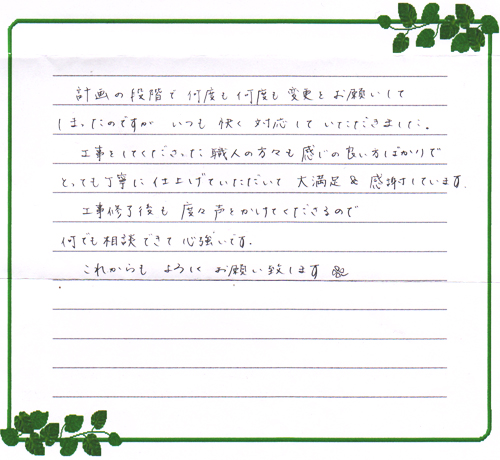 計画の段階で何度も何度も変更をお願いして
しまったのですが いつも快く対応していただきました。
工事をしてくださった職人の方々も感じの良い方ばかりで
とっても丁寧に仕上げていただいて 大満足&感謝しています。
工事修了後も度々声をかけてくださるので
何でも相談できて心強いです。
これからも よろしく お願い致します